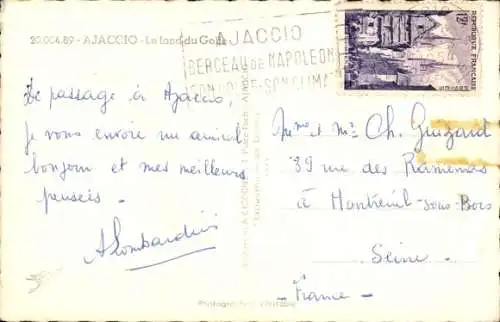 20.004.89 - AJACCIO - Le fond du Golfe
AJACCIO
BERCEAU DE NAPOLEON
SON CLIMAT
12F
REPUBLIQUE FRANÇAISE
De passage à Ajaccio,
je vous envoie un amical
bonjour et mes meilleurs
pensées.
A Lombardini
Mme et Mr Ch. Guizard
39 rue des Ramenas
à Montreuil-sous-Bois
Seine
- France -